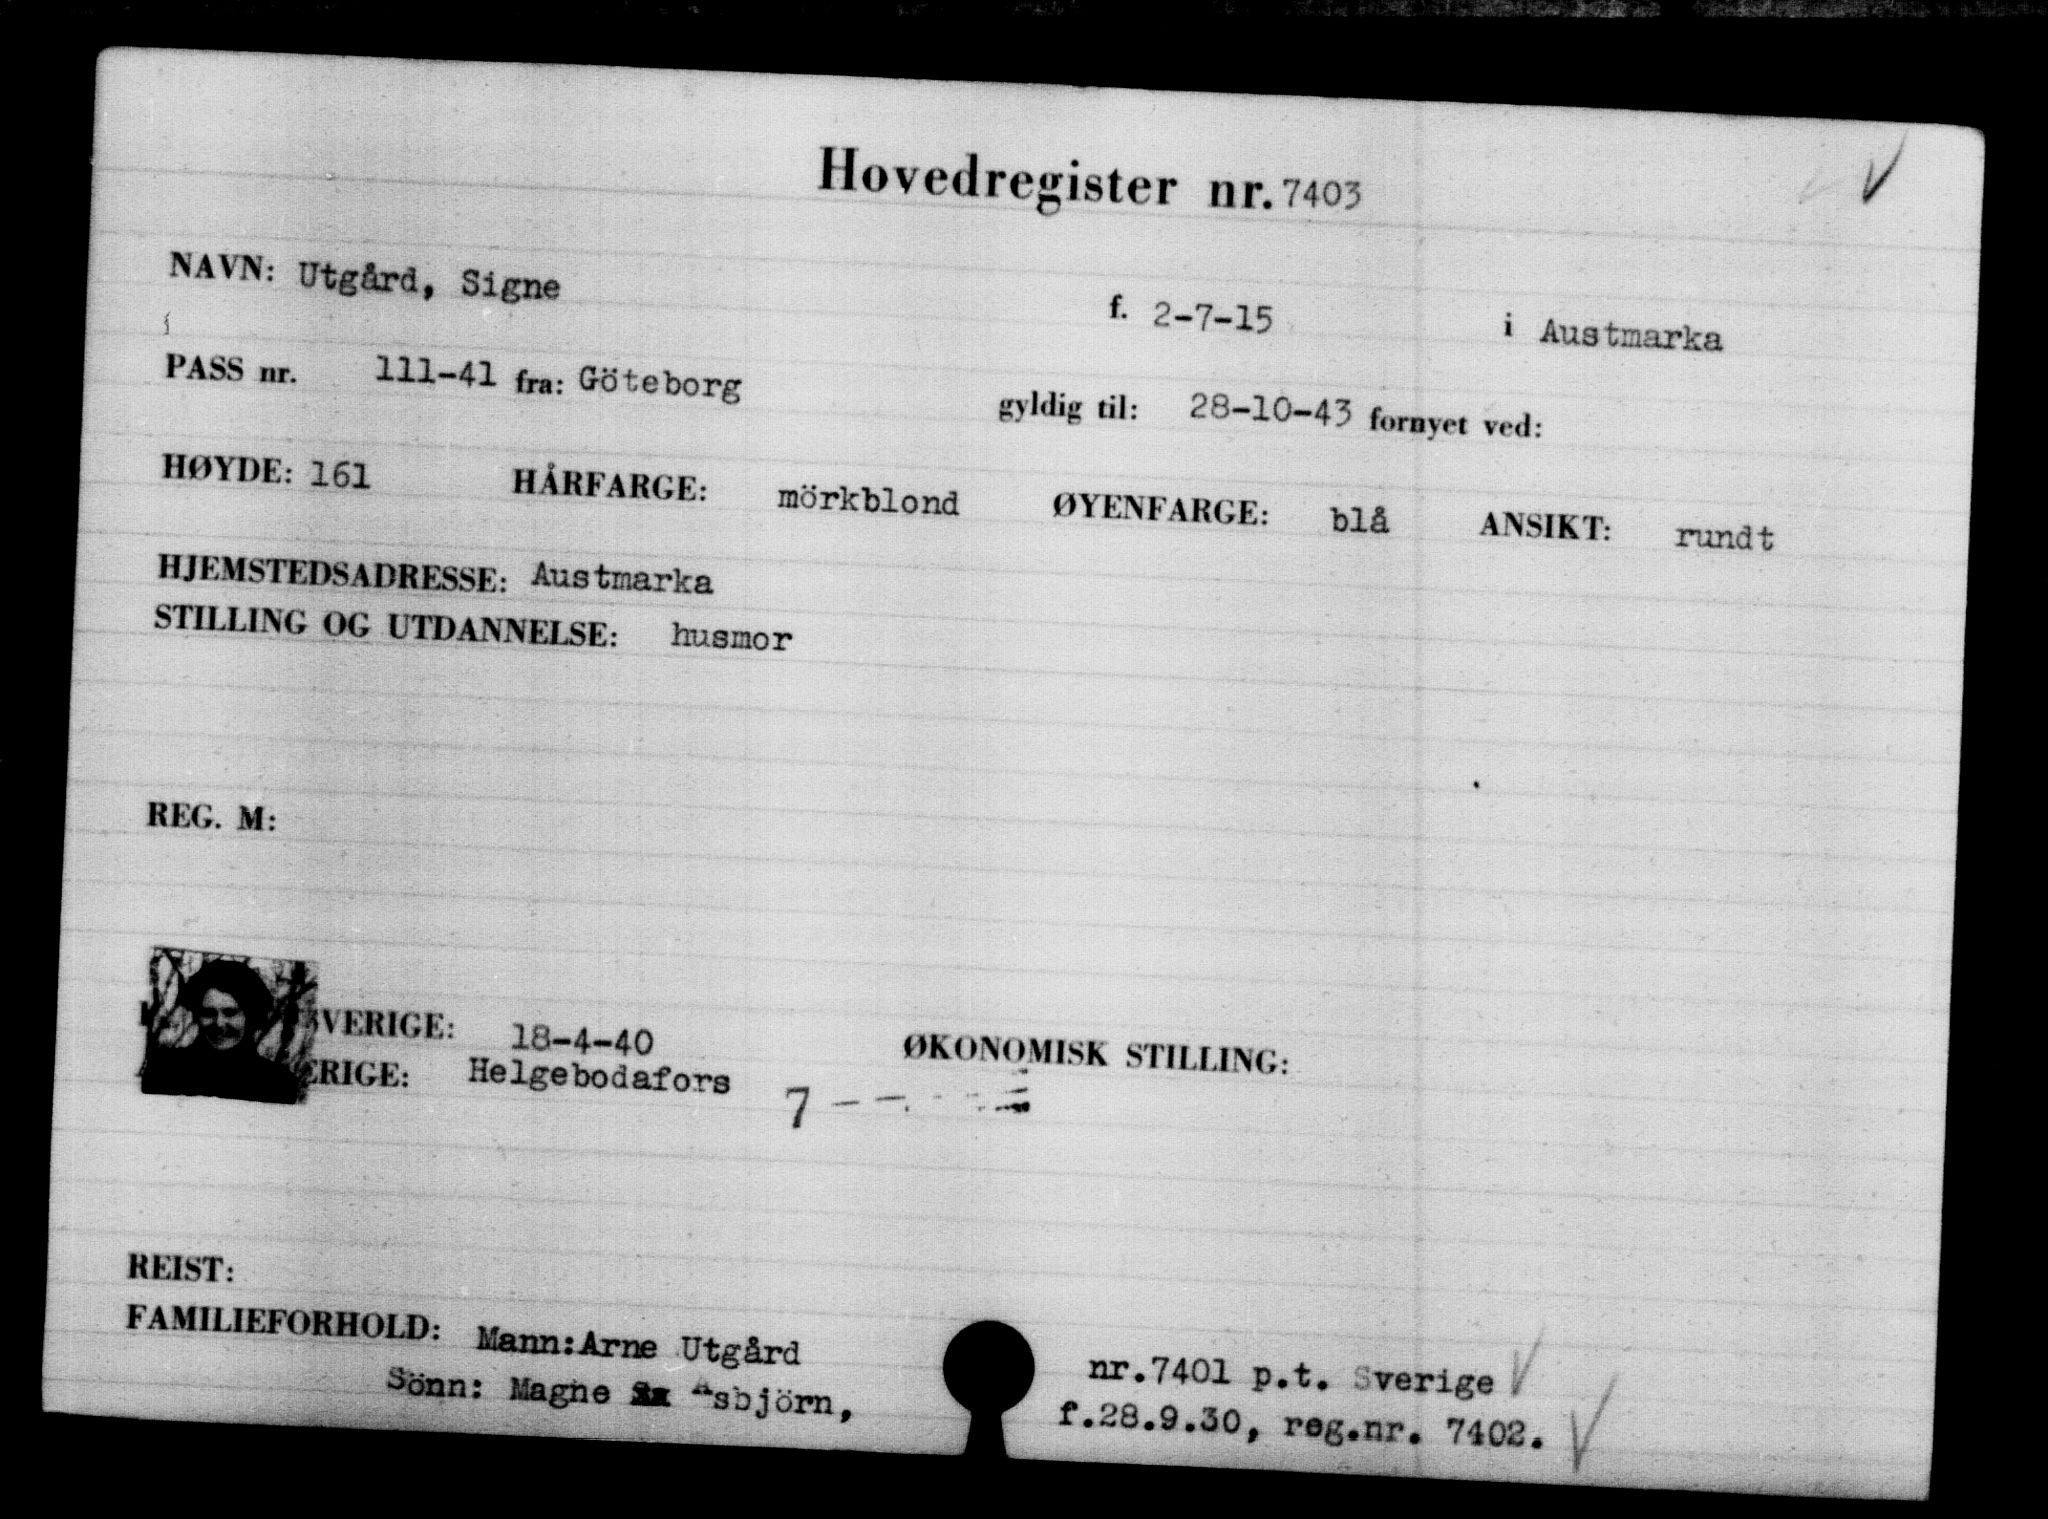 Hovedregister nr. 7403
NAVN: Utgård, Signe f. 2-7-15 i Austmarka
PASS nr. 111-41 fra: Göteborg gyldig til: 28-10-43 fornyet ved:
HØYDE: 161 HÅRFARGE: mörkblond ØYENFARGE: blå ANSIKT: rundt
HJEMSTEDSADRESSE: Austmarka
STILLING OG UTDANNELSE: husmor
REG. M:
SVERIGE: 18-4-40 ØKONOMISK STILLING:
ERIGE: Helgebodafors
7
REIST:
FAMILIEFORHOLD: Mann:Arne Utgård nr.7401 p.t. Sverige
Sönn: Magne Asbjörn, f.28.9.30, reg.nr. 7402.